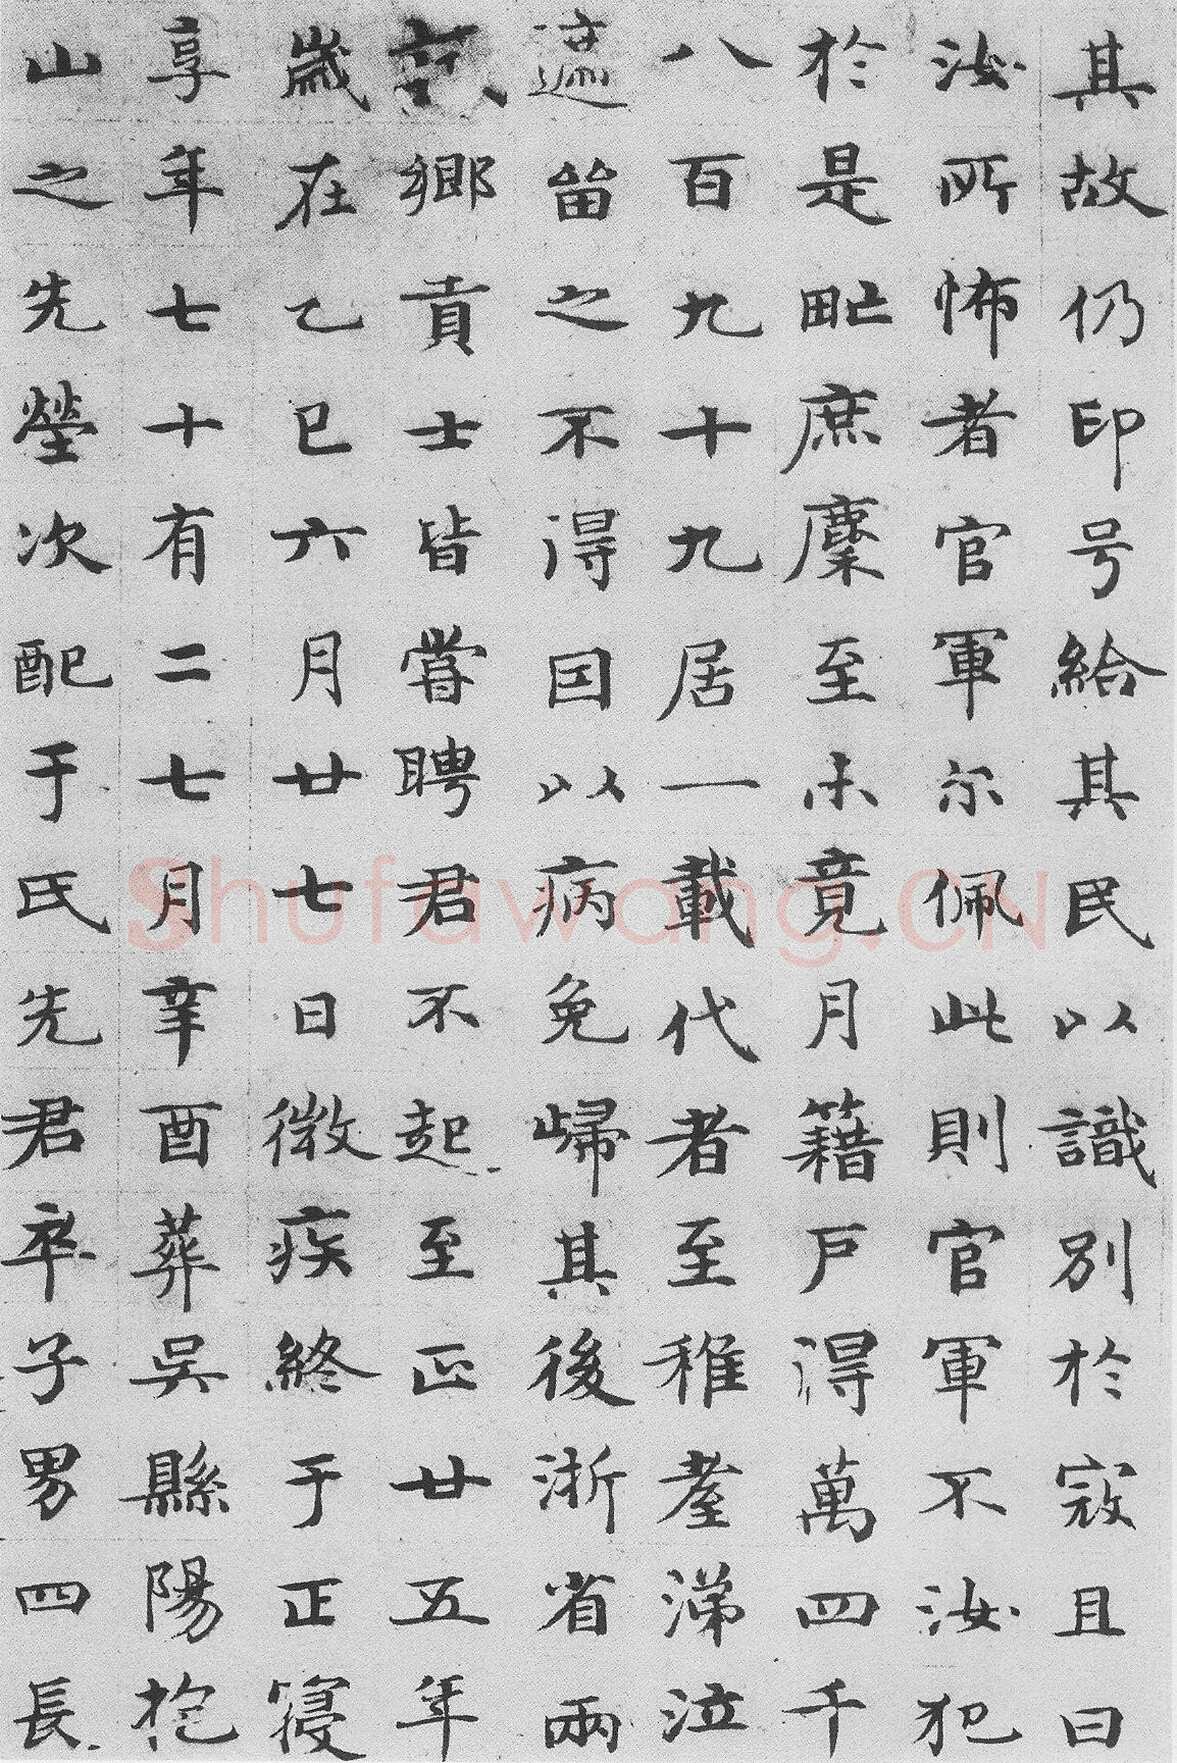 其故仍印号給其民以識別於寇且曰
汝所怖者官軍尔佩此則官軍不汝犯
於是甿庶麇至未竟月籍戶得萬四千
八百九十九居一載代者至稚耋涕泣
遮留之不得囙以病免歸其後浙省兩
試鄉貢士皆嘗聘君不起至正廿五年
歲在乙巳六月廿七日微疾終于正寢
享年七十有二七月辛酉葬吳縣陽抱
山之先塋次配于氏先君卒子男四長
Shufawang.CN